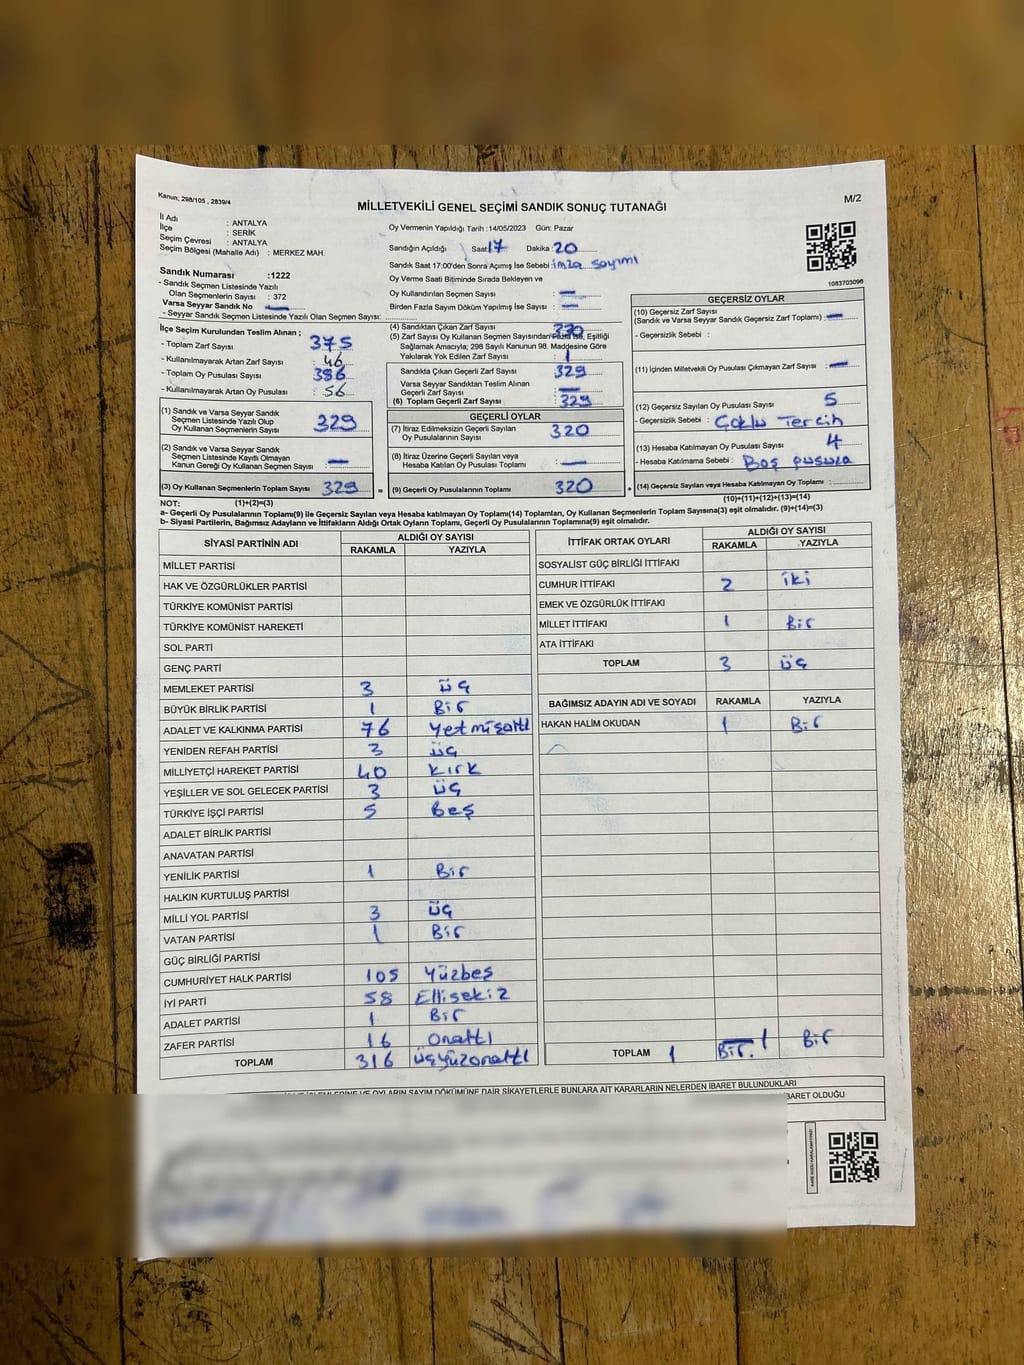 Kanun; 298/105 , 2839/4
MİLLETVEKİLİ GENEL SEÇİMİ SANDIK SONUÇ TUTANAĞI
M/2
İl Adı : ANTALYA
İlçe : SERİK
Seçim Çevresi : ANTALYA
Seçim Bölgesi (Mahalle Adı) : MERKEZ MAH.
Sandık Numarası :1222
- Sandık Seçmen Listesinde Yazılı
Olan Seçmenlerin Sayısı : 372
Varsa Seyyar Sandık No —
- Seyyar Sandık Seçmen Listesinde Yazılı Olan Seçmen Sayısı:
İlçe Seçim Kurulundan Teslim Alınan ;
- Toplam Zarf Sayısı : 375
- Kullanılmayarak Artan Zarf Sayısı : 46
- Toplam Oy Pusulası Sayısı : 386
- Kullanılmayarak Artan Oy Pusulası : 56
(1) Sandık ve Varsa Seyyar Sandık
Seçmen Listesinde Yazılı Olup
Oy Kullanan Seçmenlerin Sayısı : 329
(2) Sandık ve Varsa Seyyar Sandık
Seçmen Listesinde Kayıtlı Olmayan
Kanun Gereği Oy Kullanan Seçmen Sayısı : —
(3) Oy Kullanan Seçmenlerin Toplam Sayısı : 329
Oy Vermenin Yapıldığı Tarih :14/05/2023 Gün: Pazar
Sandığın Açıldığı Saat: 17 Dakika : 20
Sandık Saat 17:00'den Sonra Açımış İse Sebebi : imza sayımı
Oy Verme Saati Bitiminde Sırada Bekleyen ve
Oy Kullandırılan Seçmen Sayısı : —
Birden Fazla Sayım Döküm Yapılmış İse Sayısı : —
(4) Sandıktan Çıkan Zarf Sayısı : 330
(5) Zarf Sayısı Oy Kullanan Seçmen Sayısından Fazla İse, Eşitliği
Sağlamak Amacıyla; 298 Sayılı Kanunun 98. Maddesine Göre
Yakılarak Yok Edilen Zarf Sayısı : 1
Sandıkla Çıkan Geçerli Zarf Sayısı : 329
Varsa Seyyar Sandıktan Teslim Alınan
Geçerli Zarf Sayısı : —
(6) Toplam Geçerli Zarf Sayısı : 329
GEÇERLİ OYLAR
(7) İtiraz Edilmeksizin Geçerli Sayılan
Oy Pusulalarının Sayısı : 320
(8) İtiraz Üzerine Geçerli Sayılan veya
Hesaba Katılan Oy Pusulası Toplamı : —
= (9) Geçerli Oy Pusulalarının Toplamı : 320
1083703096
GEÇERSİZ OYLAR
(10) Geçersiz Zarf Sayısı
(Sandık ve Varsa Seyyar Sandık Geçersiz Zarf Toplamı) : —
- Geçersizlik Sebebi :
(11) İçinden Milletvekili Oy Pusulası Çıkmayan Zarf Sayısı : —
(12) Geçersiz Sayılan Oy Pusulası Sayısı : 5
- Geçersizlik Sebebi : Çoklu Tercih
(13) Hesaba Katılmayan Oy Pusulası Sayısı : 4
- Hesaba Katılmama Sebebi : Boş pusula
+ (14) Geçersiz Sayılan veya Hesaba Katılmayan Oy Toplamı :
NOT: (1)+(2)=(3) (10)+(11)+(12)+(13)=(14)
a- Geçerli Oy Pusulalarının Toplamı(9) ile Geçersiz Sayılan veya Hesaba katılmayan Oy Toplamı(14) Toplamları, Oy Kullanan Seçmenlerin Toplam Sayısına(3) eşit olmalıdır. (9)+(14)=(3)
b- Siyasi Partilerin, Bağımsız Adayların ve İttifakların Aldığı Ortak Oyların Toplamı, Geçerli Oy Pusulalarının Toplamına(9) eşit olmalıdır.
SİYASİ PARTİNİN ADI ALDIĞI OY SAYISI
RAKAMLA YAZIYLA
MİLLET PARTİSİ
HAK VE ÖZGÜRLÜKLER PARTİSİ
TÜRKİYE KOMÜNİST PARTİSİ
TÜRKİYE KOMÜNİST HAREKETİ
SOL PARTİ
GENÇ PARTİ
MEMLEKET PARTİSİ 3 üç
BÜYÜK BİRLİK PARTİSİ 1 Bir
ADALET VE KALKINMA PARTİSİ 76 yetmişaltı
YENİDEN REFAH PARTİSİ 3 üç
MİLLİYETÇİ HAREKET PARTİSİ 40 kırk
YEŞİLLER VE SOL GELECEK PARTİSİ 3 üç
TÜRKİYE İŞÇİ PARTİSİ 5 Beş
ADALET BİRLİK PARTİSİ
ANAVATAN PARTİSİ
YENİLİK PARTİSİ 1 Bir
HALKIN KURTULUŞ PARTİSİ
MİLLİ YOL PARTİSİ 3 üç
VATAN PARTİSİ 1 Bir
GÜÇ BİRLİĞİ PARTİSİ
CUMHURİYET HALK PARTİSİ 105 Yüzbeş
İYİ PARTİ 58 Ellisekiz
ADALET PARTİSİ 1 Bir
ZAFER PARTİSİ 16 onaltı
TOPLAM 316 üçyüzonaltı
İTTİFAK ORTAK OYLARI ALDIĞI OY SAYISI
RAKAMLA YAZIYLA
SOSYALİST GÜÇ BİRLİĞİ İTTİFAKI
CUMHUR İTTİFAKI 2 iki
EMEK VE ÖZGÜRLÜK İTTİFAKI
MİLLET İTTİFAKI 1 Bir
ATA İTTİFAKI
TOPLAM 3 üç
BAĞIMSIZ ADAYIN ADI VE SOYADI RAKAMLA YAZIYLA
HAKAN HALİM OKUDAN 1 Bir
TOPLAM 1 Bir. 1 Bir
İŞLEMLERİNE VE OYLARIN SAYIM DÖKÜMÜNE DAİR ŞİKAYETLERLE BUNLARA AİT KARARLARIN NELERDEN İBARET BULUNDUKLARI
İBARET OLDUĞU